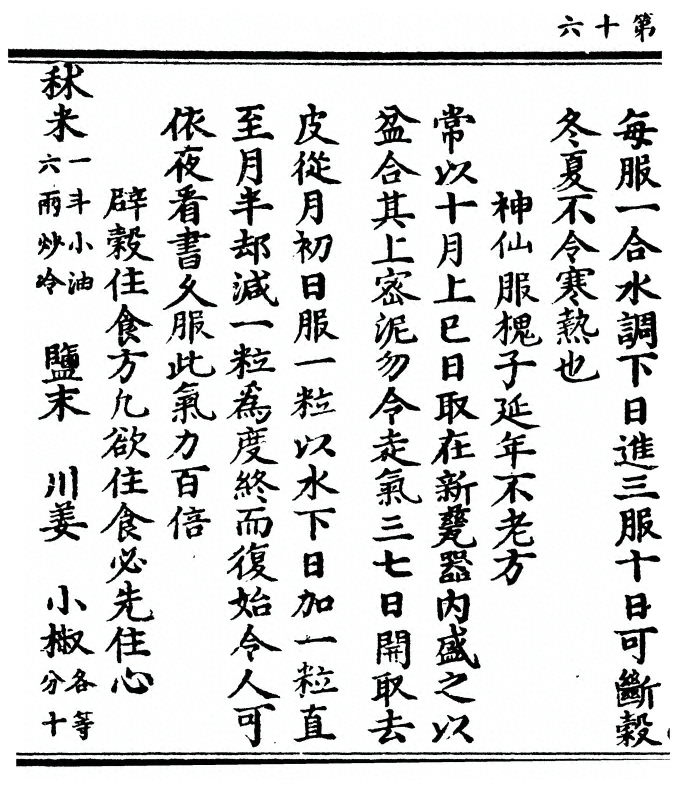 第十六
每服一合水調下日進三服十日可斷穀
冬夏不令寒熱也
神仙服槐子延年不老方
常以十月上巳日取在新甕器内盛之以
盆合其上密泥勿令走氣三七日開取去
皮從月初日服一粒以水下日加一粒直
至月半却減一粒爲度終而復始令人可
依夜看書久服此氣力百倍
辟穀住食方凢欲住食必先住心
秫米一斗小油六兩炒冷 鹽末 川姜 小椒各等分十